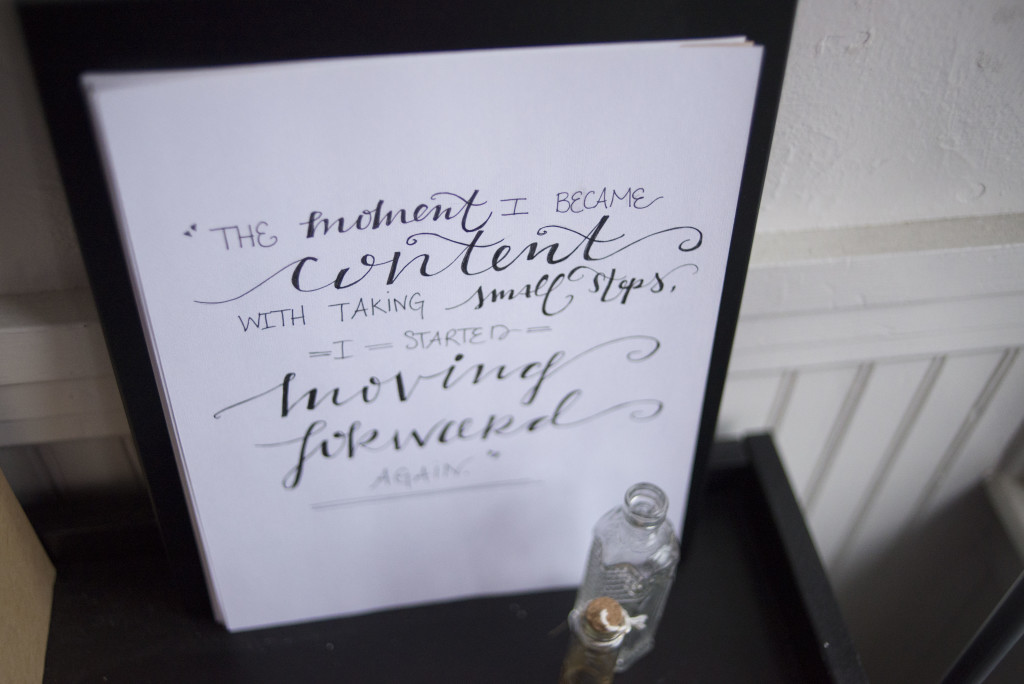 "THE moment I BECAME
content
WITH TAKING small steps,
I STARTED
moving
forward
AGAIN."